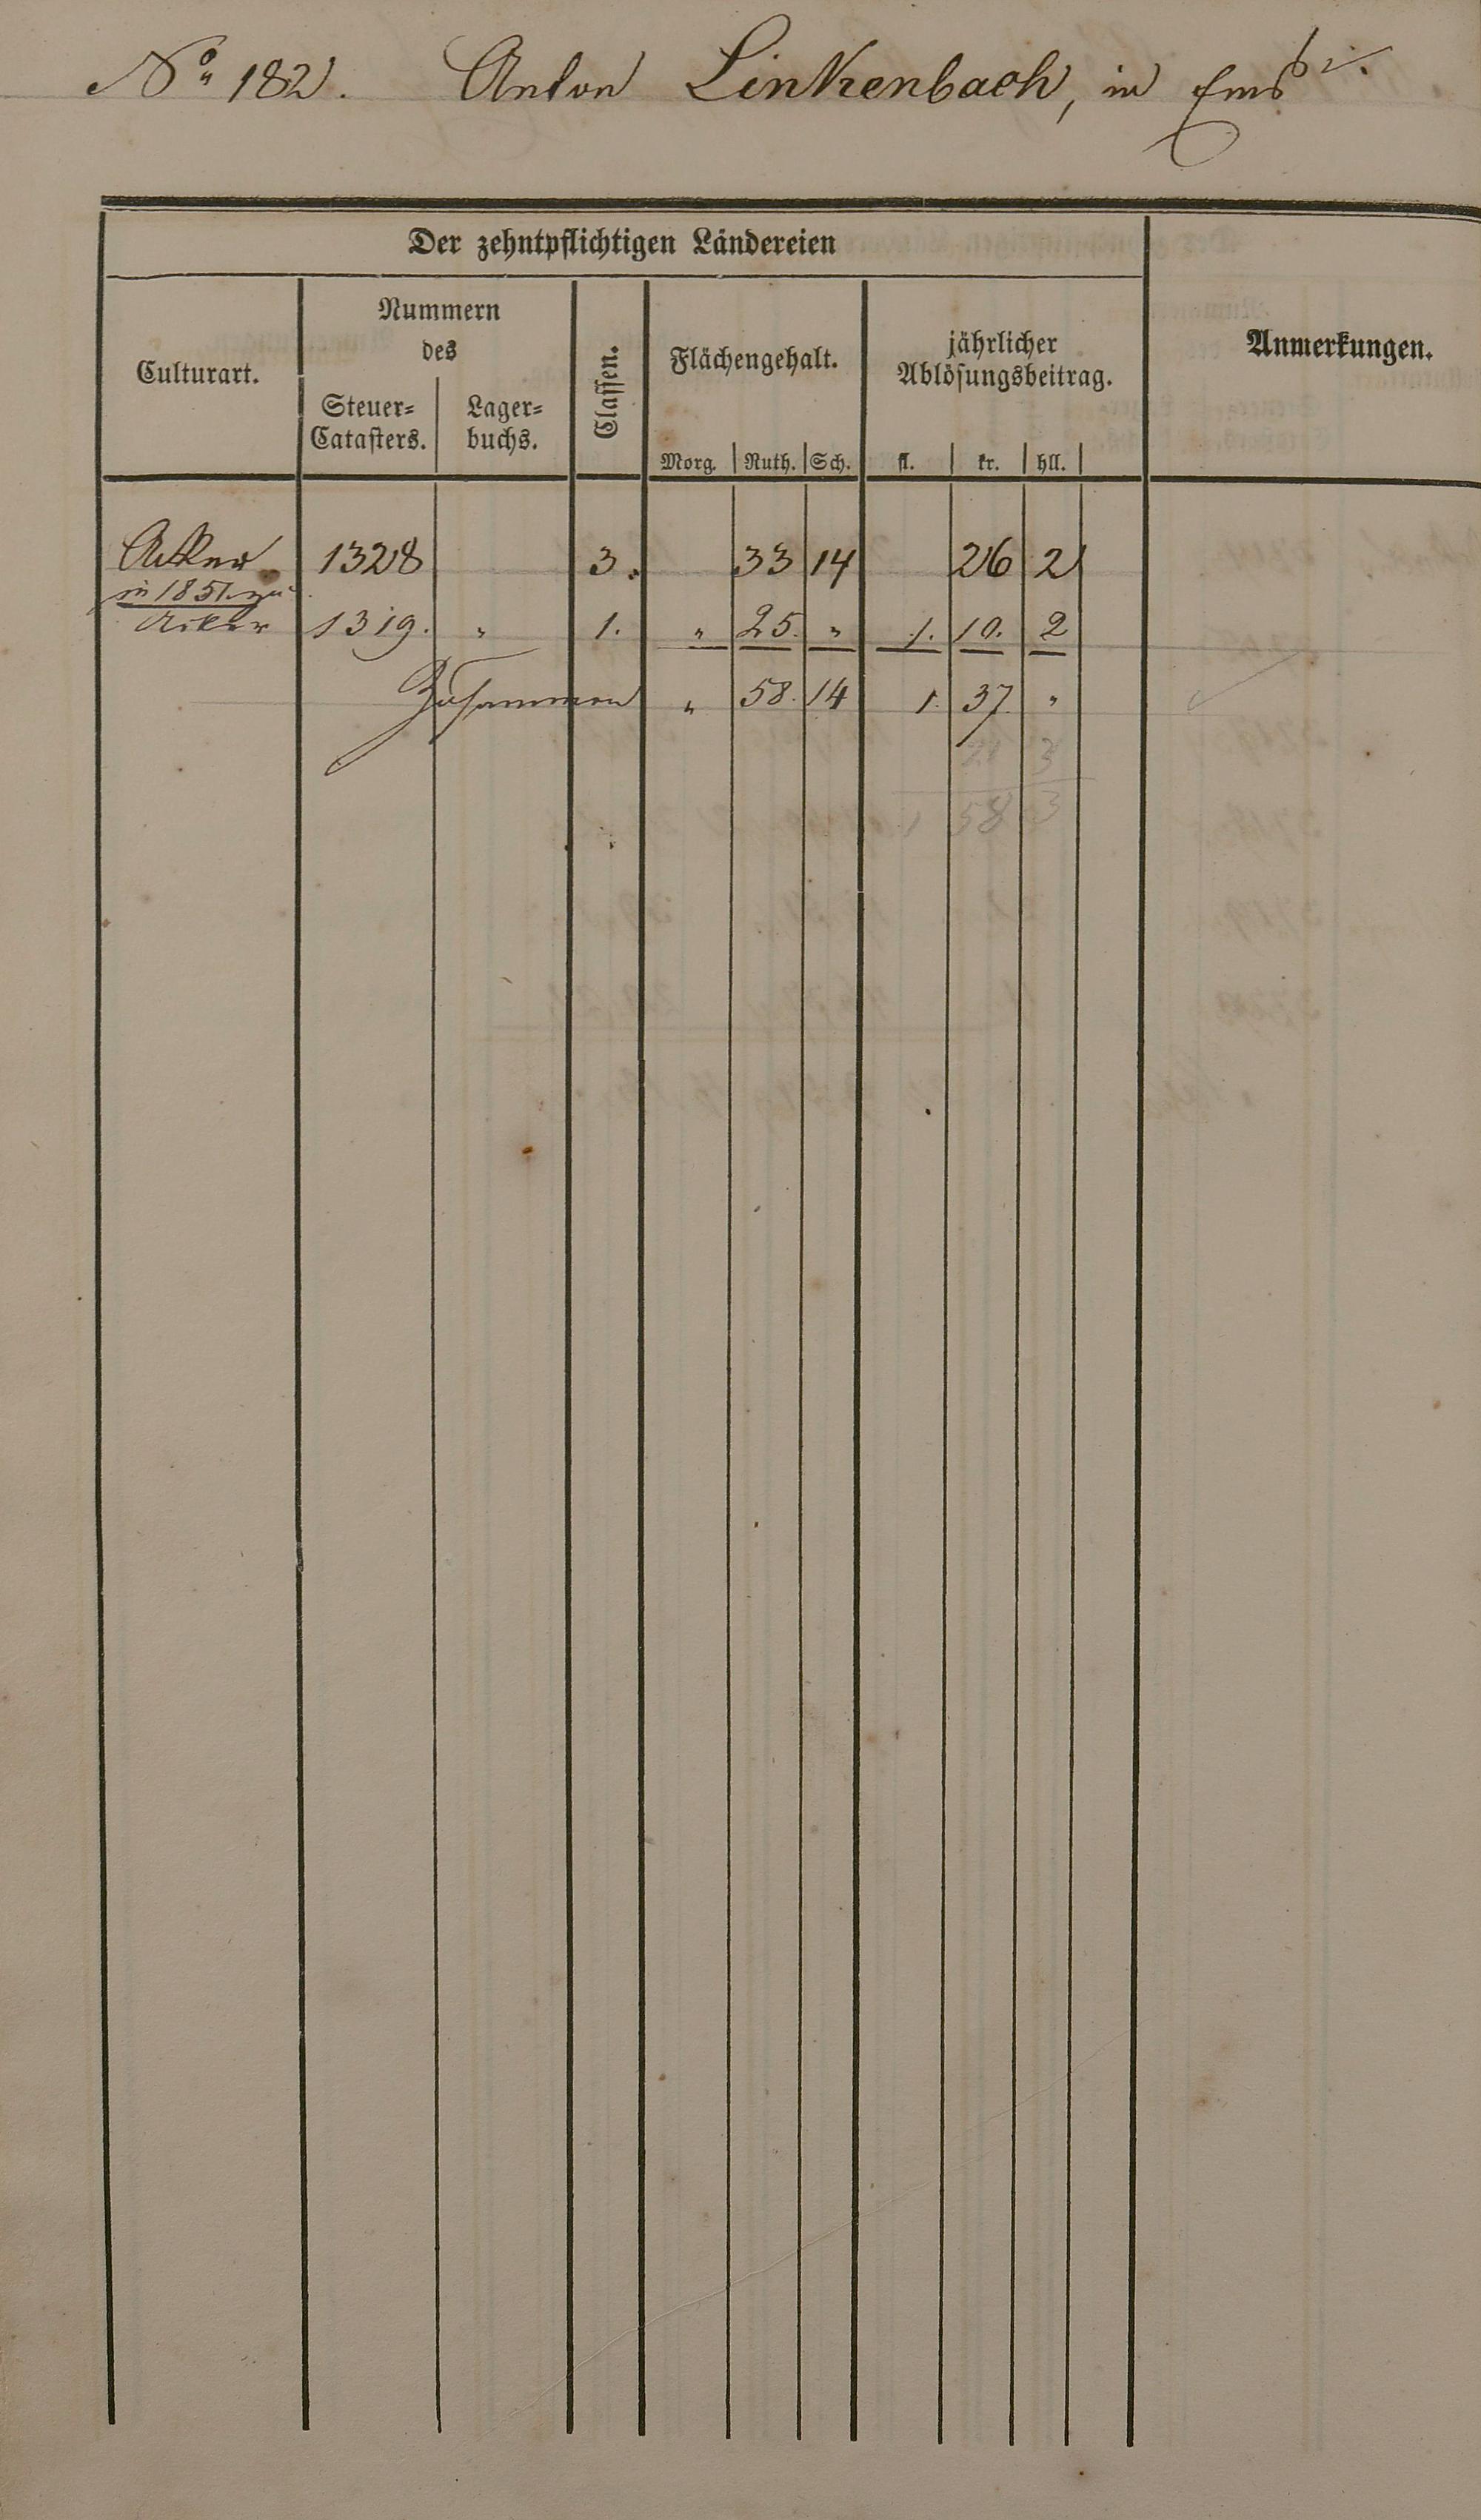 No 182. Anton Linkenbach, in Ems
Der zehntpflichtigen Ländereien
Culturart.
Nummern
des
Steuer-
Catasters.
Lager-
buchs.
Classen.
Flächengehalt.
Morg. Ruth. Sch.
jährlicher
Ablösungsbeitrag.
fl. kr. hll.
Anmerkungen.
Acker 1328 3. 33 14 26 2
in 1851 zu
Acker 1319. " 1. " 25. " 1. 10. 2
Zusammen " 58. 14 1. 37 "
21 3
1 58 3